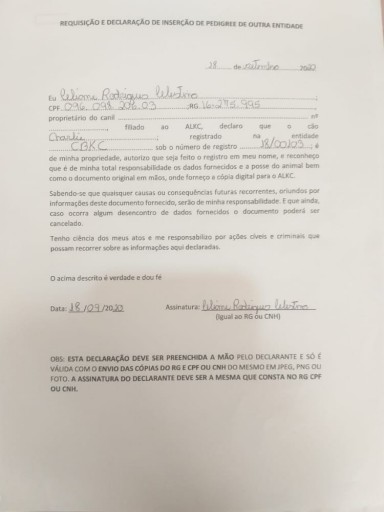 REQUISIÇÃO E DECLARAÇÃO DE INSERÇÃO DE PEDIGREE DE OUTRA ENTIDADE
18 de setembro 2020
Eu Lidiane Rodrigues Celestino
CPF 096.098.206.03 ;RG 16.275.995
proprietário do canil nº
, filiado ao ALKC, declaro que o cão
Charlie, registrado na entidade
CBKC sob o número de registro 18/00103; é
de minha propriedade, autorizo que seja feito o registro em meu nome, e reconheço
que é de minha total responsabilidade os dados fornecidos e a posse do animal bem
como o documento original em mãos, onde forneço a cópia digital para o ALKC.
Sabendo-se que quaisquer causas ou consequências futuras recorrentes, oriundos por
informações deste documento fornecido, serão de minha responsabilidade. E que ainda,
caso ocorra algum desencontro de dados fornecidos o documento poderá ser
cancelado.
Tenho ciência dos meus atos e me responsabilizo por ações cíveis e criminais que
possam recorrer sobre as informações aqui declaradas.
O acima descrito é verdade e dou fé
Data: 18/09/2020 Assinatura: Rodrigues Celestino
(Igual ao RG ou CNH)
OBS: ESTA DECLARAÇÃO DEVE SER PREENCHIDA A MÃO PELO DECLARANTE E SÓ É
VÁLIDA COM O ENVIO DAS CÓPIAS DO RG E CPF OU CNH DO MESMO EM JPEG, PNG OU
FOTO. A ASSINATURA DO DECLARANTE DEVE SER A MESMA QUE CONSTA NO RG CPF
OU CNH.